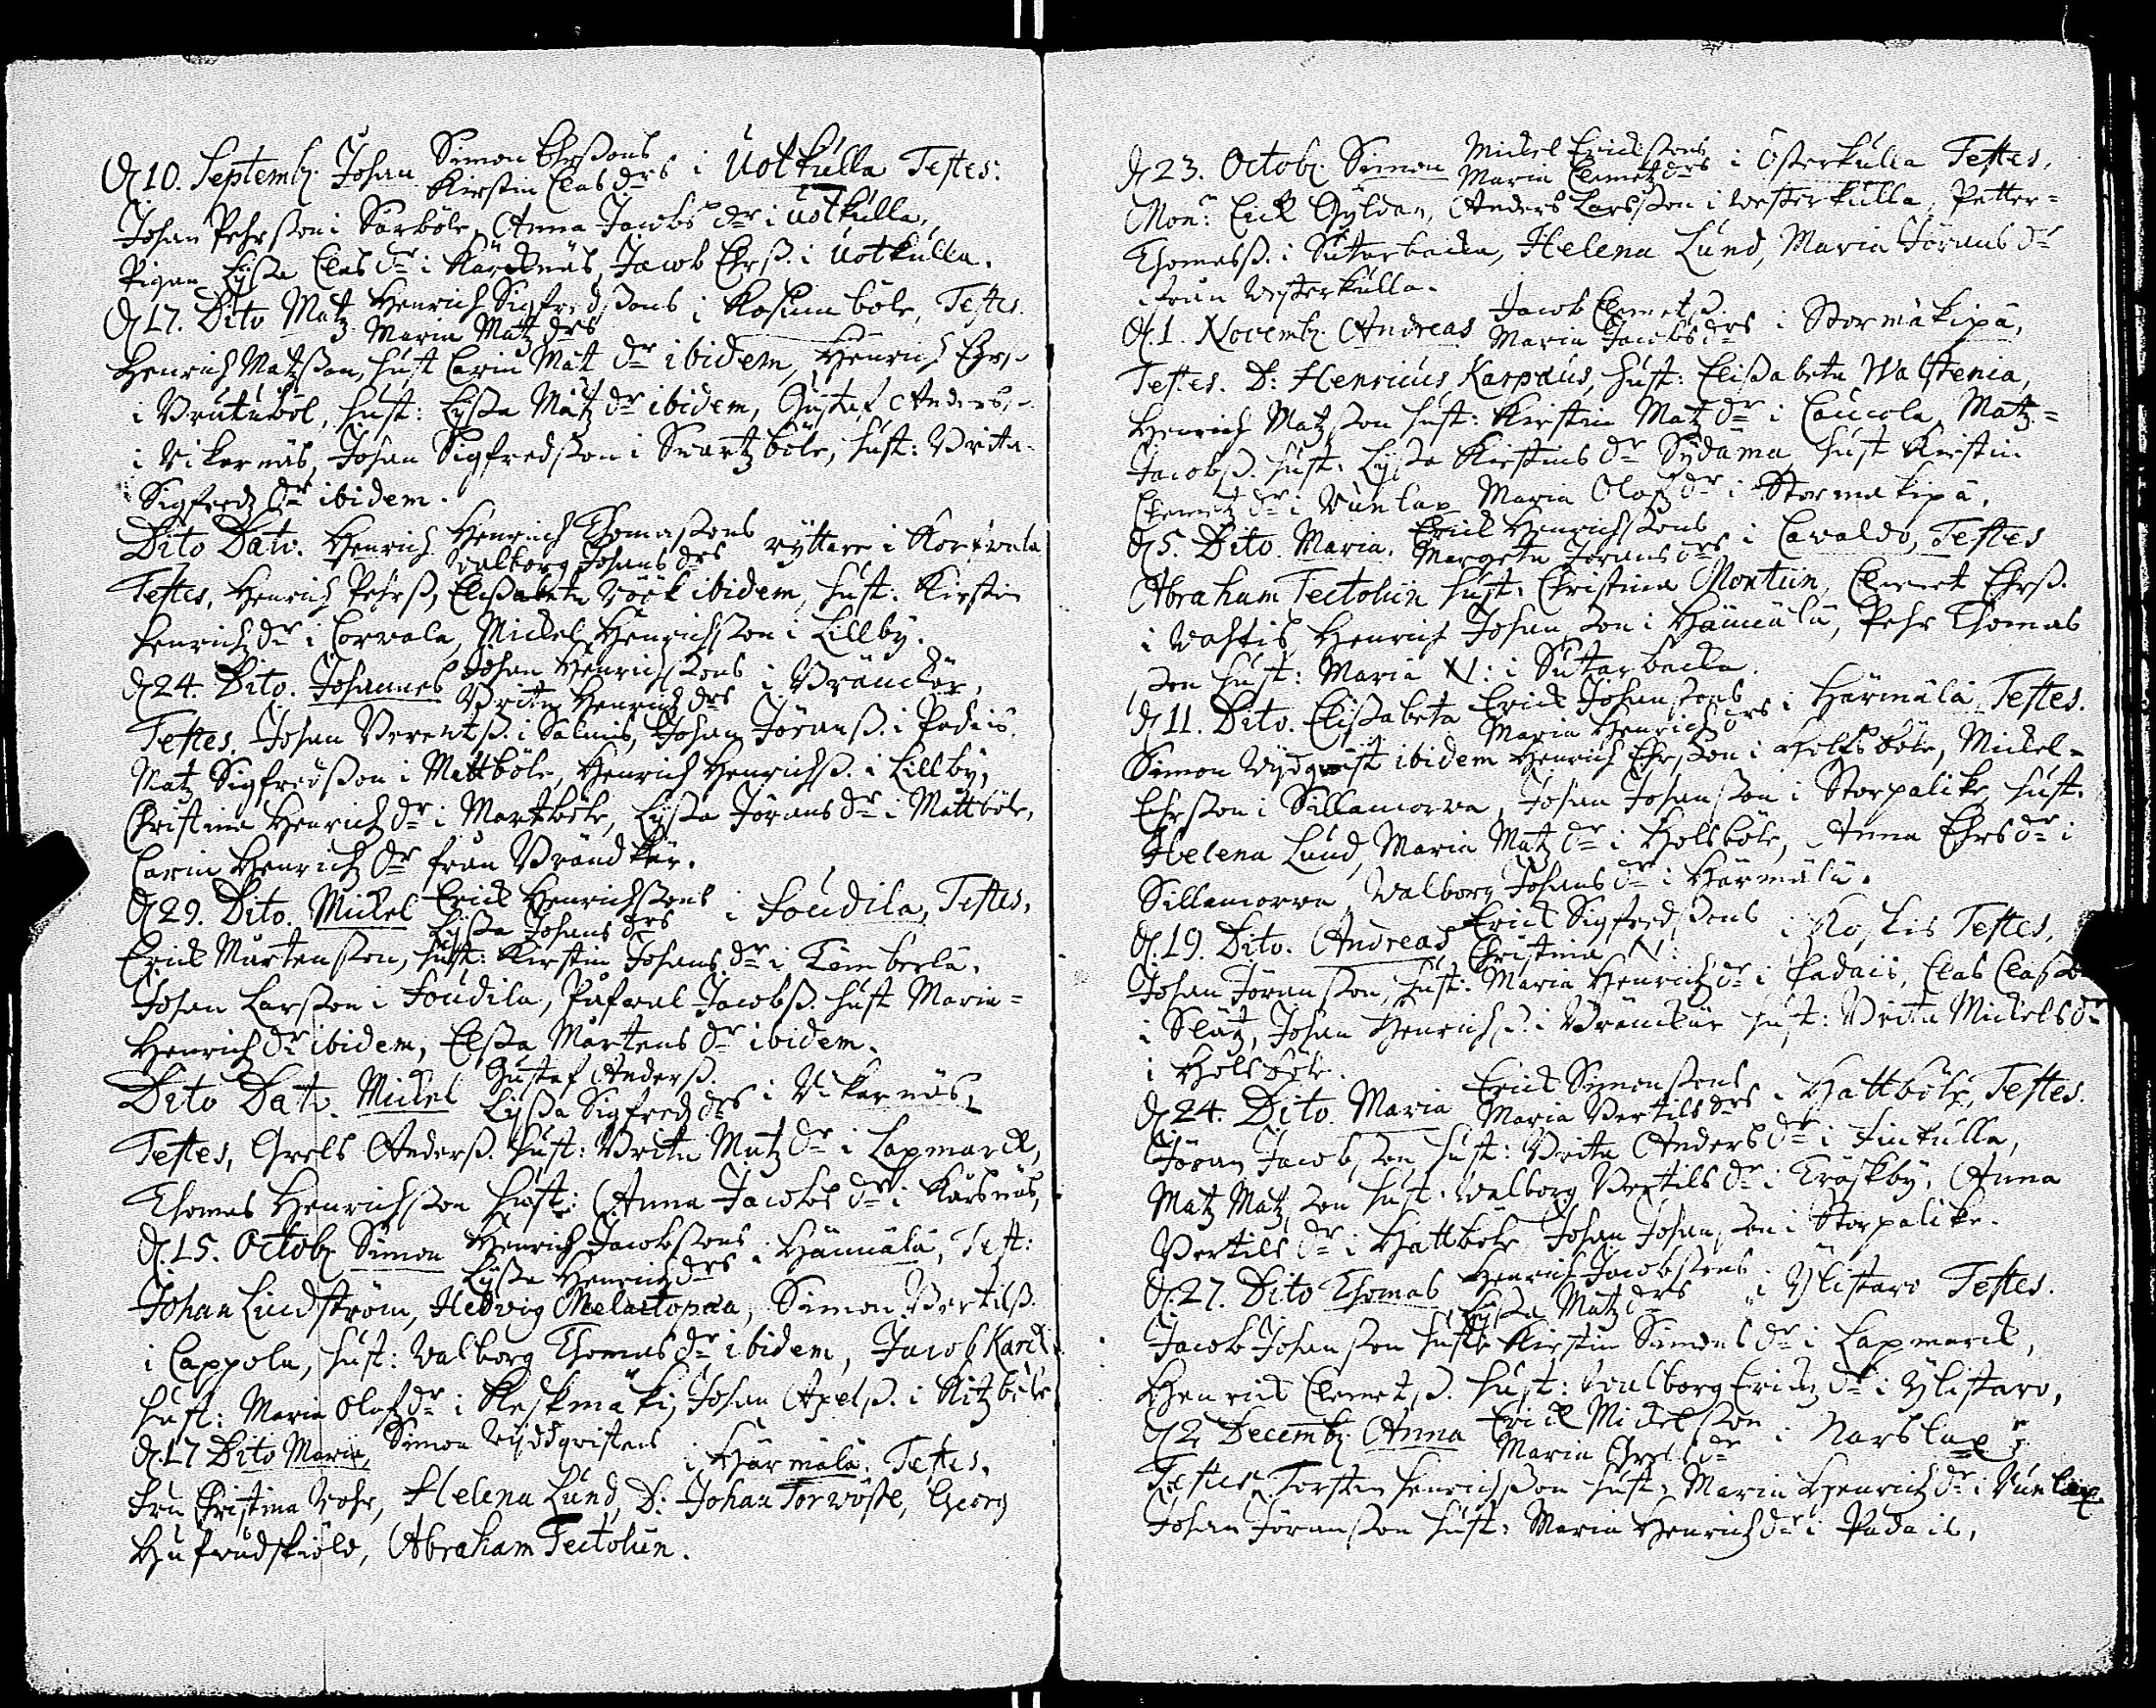 D. 10. Septemb: Johan Simon Ehrsons
Kirstin Clas drs i Uotkulla Testes:
Johan Pehrsson i Sarböle, Anna Jacobs dr i Uotkulla,
Pigan Lijsa Clas dr i Karsknäs, Jacob Ehrss. i Uotkulla.
D 17. Dito Matz Henrich Sigfredssons i Kosunböle, Testes.
Maria Matz drs
Henrich Matzson, hust Carin Mat dr ibidem, Henrich Ehrs.
i Brutuböl, hust: Lijsa Matz dr ibidem, Gustaf Anders.
i Vikarnäs, Johan Sigfredsson i Swartzböle, hust: Brita
Sigfredz dr ibidem.
Dito Dato. Henrich Henrich Thomassons
Valborg Johans drs ryttare i Korwala
Testes, Henrich Pehrss, Elisabeta Röök ibidem, hust. Kirstin
Henrichz dr i Corvala, Mickel Henrichsson i Lillby.
D 24. Dito. Johannes Johan Henrichsons
Brita Henrichz drs i Bränckär,
Testes. Johan Berentss. i Salmis, Johan Jöranss. i Padais.
Matz Sigfredsson i Mattböle, Henrich Henrichss. i Lillby,
Christina Henrichz dr i Martböle, Lijsa Jörans dr i Mattböle,
Carin Henrichz dr från Brändkär.
D 29. Dito. Mickel Erick Henrichssons
Lijsa Johans drs i Joudila, Testes,
Erick Mårtensson, hust: Kirstin Johans dr i Kimberlä.
Johan Larsson i Joudila, Påfwal Jacobss. hust Maria
Henrichz dr ibidem, Elsa Mårtens dr ibidem.
Dito Dato. Mickel Gustaf Anderss.
Lijsa Sigfredz drs i Vikarnäs,
Testes, Grels Anderss. hust: Brita Matz dr i Lapmarck,
Thomas Henrichsson hust: Anna Jacobs dr i Karsnäs,
D. 15. Octob: Simon Henrich Jacobssons
Lijsa Henrichz drs i Hännälä, Test:
Johan Lindström, Hedvig Melartopæa, Simon Bertilss.
i Cappola, hust: Valborg Thomas dr ibidem, Jacob Karck
hust: Maria Olofz dr i Keskmäki, Johan Axelss. i Kitzböle
D. 17 Dito Maria, Simon Wijdqvistens i Härmälä. Testes,
Fru Christina Rohr, Helena Lund, D: Johan Forwöste, Georg
Hufwudskiöld, Abraham Tectolin.
D 23. Octob: Simon Mickel Erickssons
Maria Clemetz drs i Österkulla Testes,
Mons: Erick Gyldan, Anders Larsson i Westerkulla, Petter
Thomass. i Sutarbacka, Helena Lund, Maria Jörans dr
ifrån Westerkulla.
D. 1. Novemb: Andreas Jacob Clemetss.
Maria Jacobs drs i Stormäkipä,
Testes. D: Henricus Karpæus, hust: Elisabeta Walstenia,
Henrich Matzson hust: Kirstin Matz dr i Caucola, Matz
Jacobss. hust: Lijsa Kirstins dr Sydama hust Kirstin
Clemetz dr i Bunlax Maria Olofz dr i Stormäkipä,
D 5. Dito. Maria. Erick Henrichssons
Margeta Jörans drs i Cavaldo, Testes
Abraham Tectolin hust: Christina Montiin, Clemet Ehrss.
i Vahtis Henrich Johanson i Hännälä, Pehr Thomas
son hust: Maria N: i Suttarbacka.
D 11. Dito. Elisabeta Erick Johanssons
Maria Henrichz drs i Härmälä Testes.
Simon Wijdqvist ibidem Henrich Ehrsson i Holfsböle, Mickel
Ehrsson i Sillamorra, Johan Johansson i Storpalike hust.
Helena Lund, Maria Matz dr i Holsböle, Anna Ehrs dr i
Sillamorra, Valborg Johans dr i Härmälä.
D. 19. Dito. Andreas Erick Sigfredsons
Christina N: i Koskis Testes,
Johan Jöransson, hust: Maria Henrichz dr i Padais, Clas Classon
i Slätz, Johan Henrichss. i Bränckär hust: Brita Mickels dr
i Holsböle.
D 24. Dito. Maria Erick Simonssons
Maria Bertils drs i Hattböle, Testes.
Jöran Jacobsson hust: Brita Anders dr i Finkulla,
Matz Matzson hust: Valborg Bertils dr i Träskby, Anna
Bertils dr i Hattböle Johan Johansson i Storpalike.
D. 27. Dito Thomas Henrich Jacobssons
Lijsa Matz drs i Ylistaro Testes.
Jacob Johansson hust: Kirstin Simons dr i Lapmarck,
Henrick Clemetss. hust: Valborg Erickz dr i Ylistaro,
D 2 Decemb: Anna Erick Mickelsson
Maria Grels dr i Narslax
Testes. Torsten Henrichsson hust: Maria Henrichz dr i Bunlax
Johan Jöransson hust: Maria Henrichz dr i Padais,